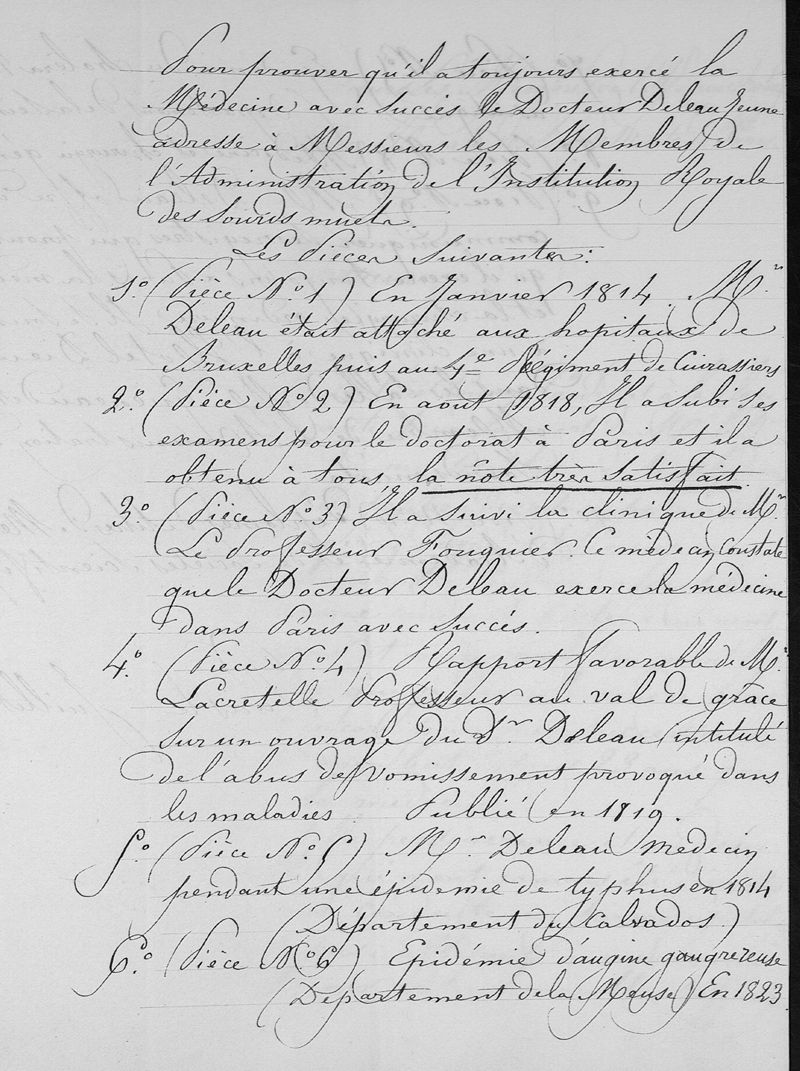 Pour prouver qu'il a toujours exercé la
Médecine avec succès le Docteur Deleau Jeune
adresse à Messieurs les Membres de
l'Administration de l'Institution Royale
des sourds muets.
Les Pièces suivantes:
1.º (Pièce Nº 1) En Janvier 1814. M.r
Deleau était attaché aux hopitaux de
Bruxelles puis au 4e Régiment de Cuirassiers
2.º (Pièce Nº 2) En aout 1818, Il a subi ses
examens pour le doctorat à Paris et il a
obtenu à tous, la note très satisfait.
3.º (Pièce Nº 3) Il a suivi la clinique de M.r
Le Professeur Fouquier. Ce médecin constate
que le Docteur Deleau exerce la médecine
dans Paris avec succès.
4.º (Pièce Nº 4) Rapport favorable de M.r
Lacretelle Professeur au val de grâce
sur un ouvrage du Dr. Deleau intitulé
de l'abus de vomissement provoqué dans
les maladies. Publié en 1819.
5.º (Pièce Nº 5) M.r Deleau médecin
pendant une épidemie de typhus en 1814
(Département du Calvados.)
6.º (Pièce Nº 6) Epidémie d'angine gangreneuse
(Département de la Meuse) En 1823